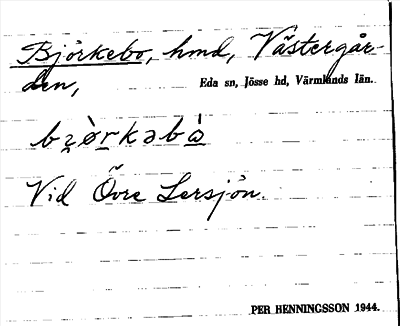 Björkebo, hmd, Västergår-
den,
Eda sn, Jösse hd, Värmlands län.
bz̨ö̀r̠kəbà̠
Vid Övre Lersjön.
PER HENNINGSSON 1944.